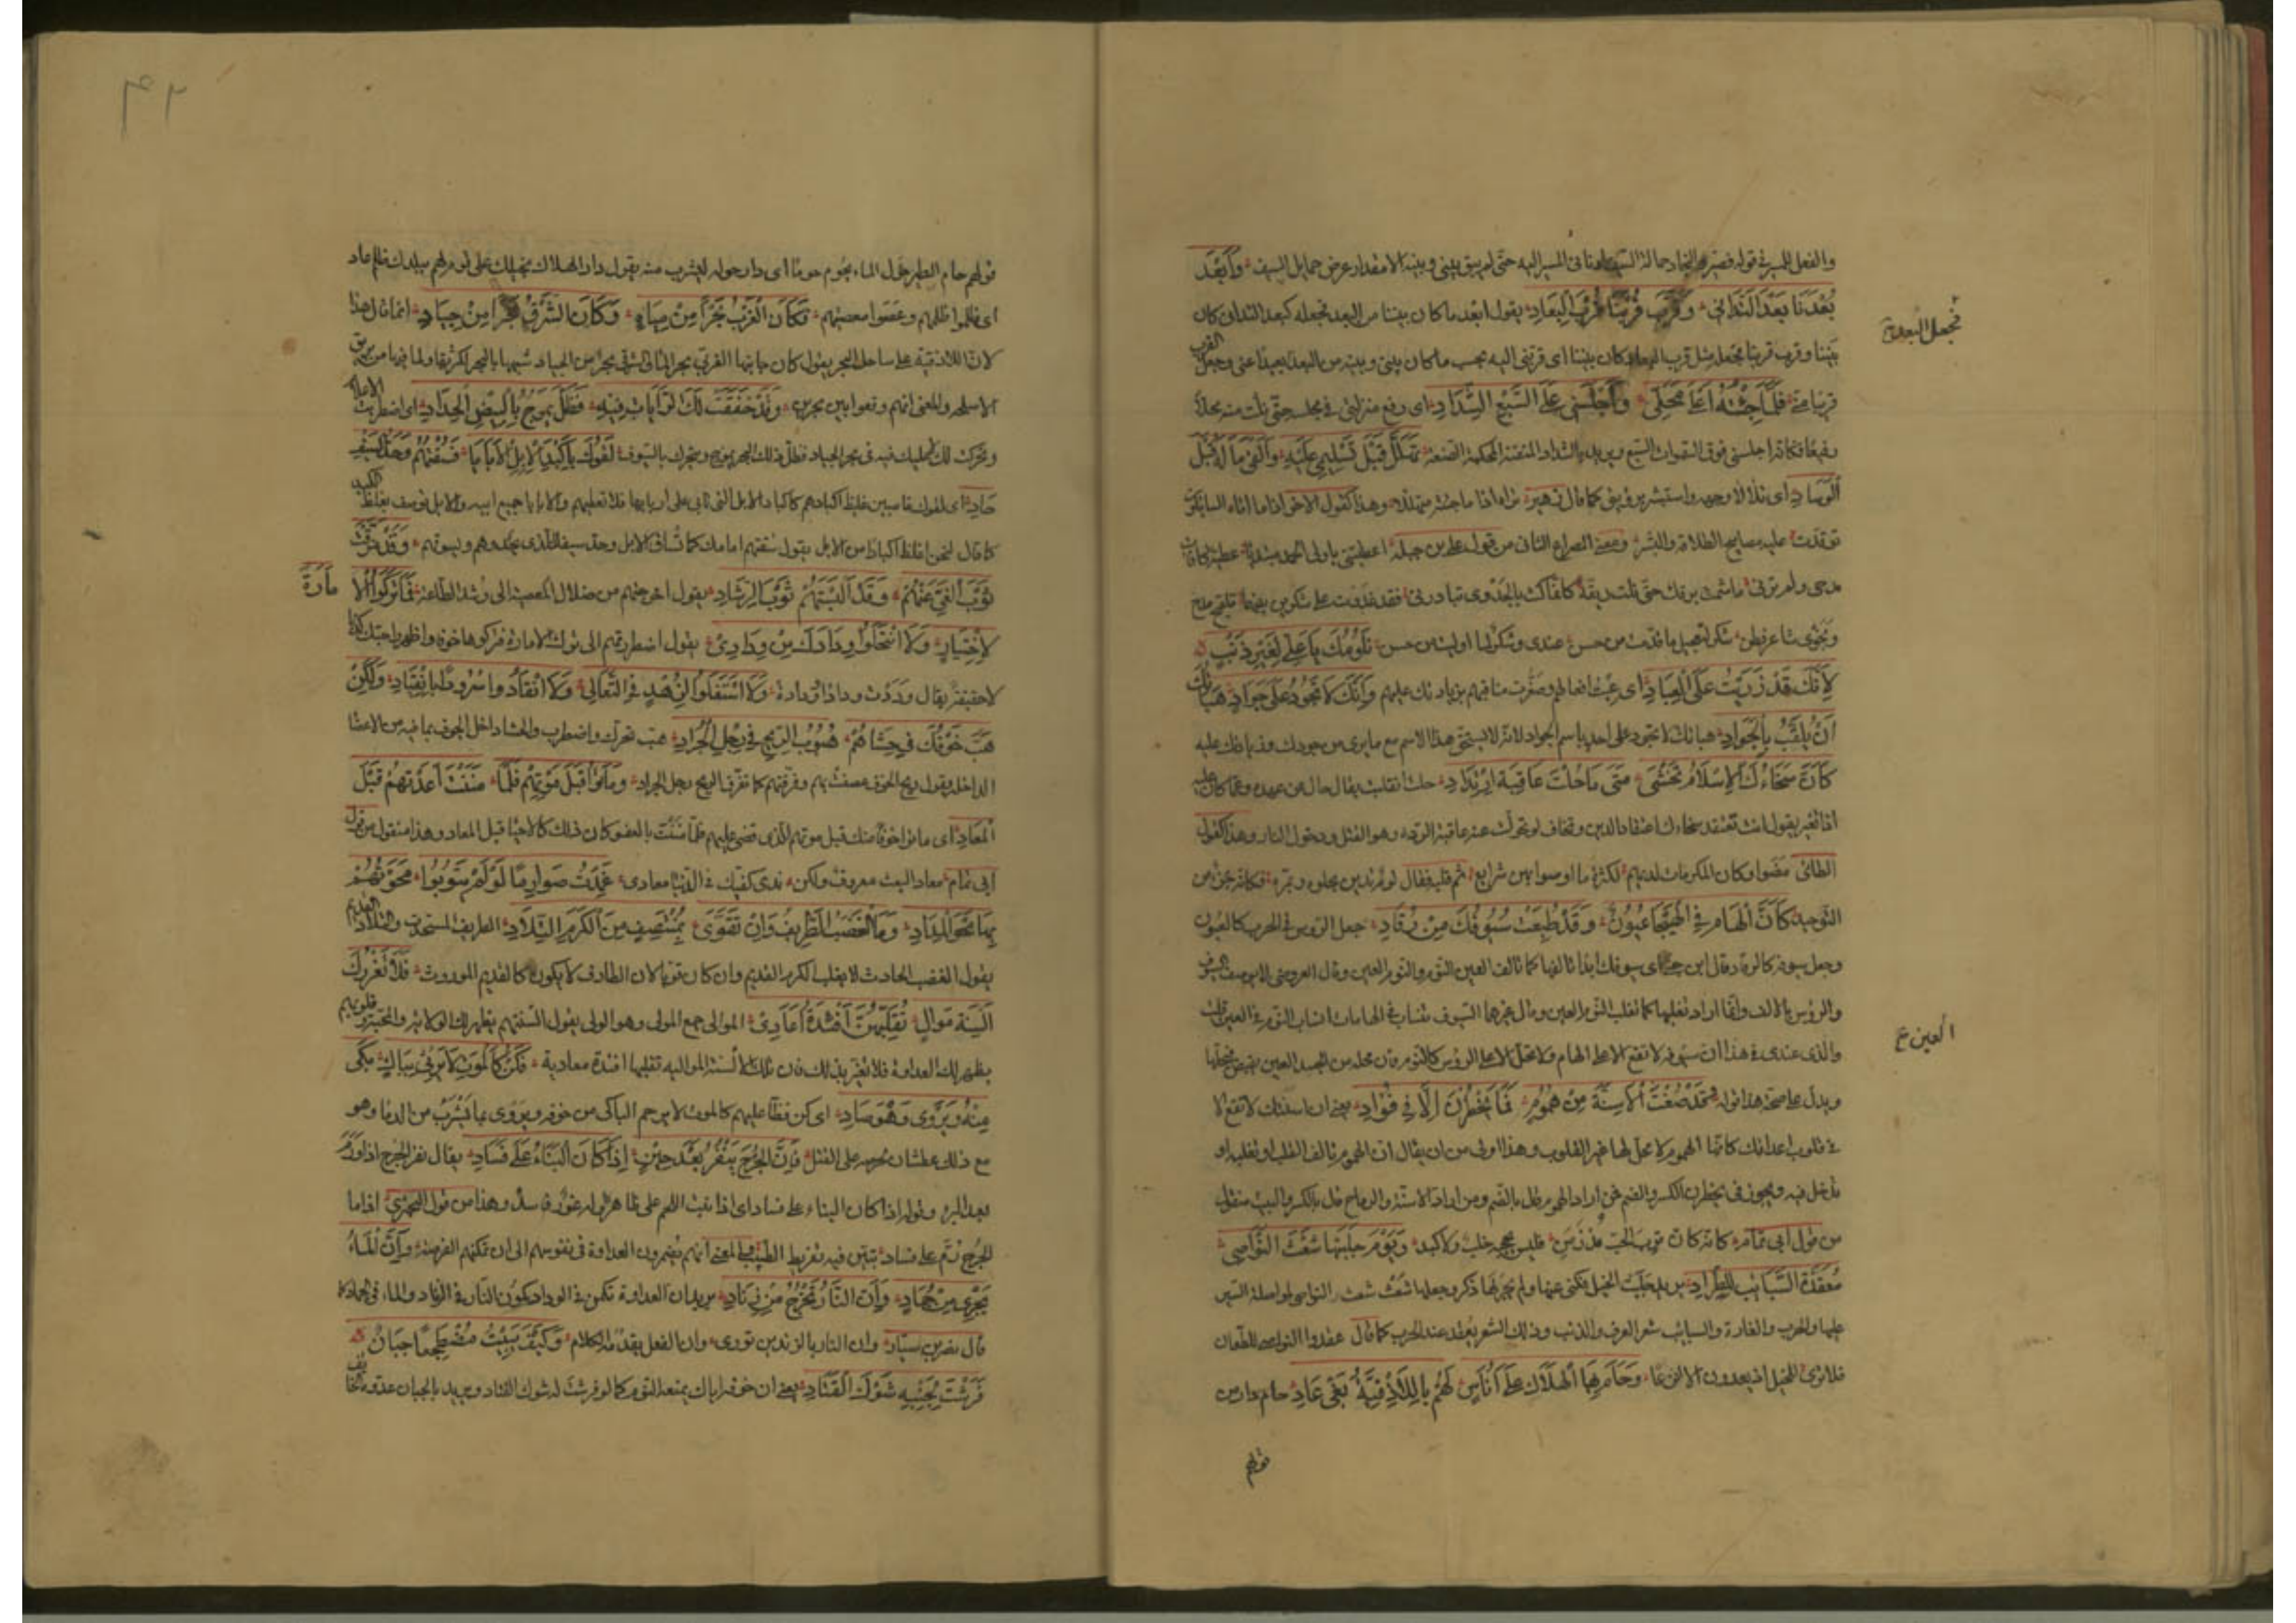 والفعل للسير في قوله فصير النجاد حمالة السيف في السير اليه حتى لم يبق بيني وبينه الا مقدار عرض حمايل السيف وَاَبْعَدَ
بُعْدَنَا بُعْدَ التَّدَانِي وَقَرَّبَ قُرْبَنَا قُرْبَ البِعَادِ يقول ابعد ما كان بيننا من البعد فجعله كبعد التداني كان
فجعل البعد
بيننا وقرب قربنا فجعل مثل قرب البعاد كان بيننا اى قربنى اليه بحسب ما كان بينى وبينه من البعد بعيدا عنى وجعل القرب
قريبا منه فَلَمَّا جِئْتُهُ اَعْلَى مَحَلِّي وَاَجْلَسَنِي عَلَى السَّبْعِ الشِّدَادِ اى رفع منزلتى فى مجلسه حتى نلت منه محلا
رفيعا فكانه اجلسنى فوق السموات السبع ويريد بالشداد المتقنة المحكمة الصنعة تَهَلَّلَ قَبْلَ تَسْلِيمِي عَلَيْهِ وَاَلْقَى مَالَهُ قَبْلَ
الوِسَادِ اى تلألأ وجهه واستبشر برؤيتى كما قال زهير تراه اذا ما جئته متهللا وهذا كقول الاخر اذا ما اتاه السايلون
توقدت عليه مصابيح الطلاقة والبشر ومعنى المصراع الثانى من قول على بن جبلة اعطيتنى يا ولى الحمد مبتديا عطية كافات
مدحى ولم ترنى ما شمت برقك حتى نلت ريقه كانما كنت بالجدوى تبادرنى
نَلُومُكَ يَا عَلِيُّ لِغَيْرِ ذَنْبٍ
لِاَنَّكَ قَدْ زَرَيْتَ عَلَى العِبَادِ اى عبت افعالهم وصغرت مناقبهم بزيادتك عليهم وَاَنَّكَ لَا تَجُودُ عَلَى جَوَادٍ هِبَاتُكَ
اَنْ يُلَقَّبَ بِالجَوَادِ هباتك لا تجود على احد باسم الجواد لانه لا يستحق هذا الاسم مع ما يرى من جودك وزيادتك عليه
كَاَنَّ سَخَاءَكَ الاِسْلَامُ تَخْشَى مَتَى مَا حُلْتَ عَاقِبَةَ ارْتِدَادِ حلت انقلبت يقال حال عن عهده وعما كان عليه
اذا تغير يقول انت تعتقد سخاءك اعتقاد الدين وتخاف لو تحولت عنه عاقبة الردة وهو القتل ودخول النار وهذا كقول
الطائى مضوا وكان المكرمات لديهم لكثرة ما اوصوا بهن شرايع ثم قلبه فقال
التوحيد كَاَنَّ الهَامَ فِي الهَيْجَا عُيُونٌ وَقَدْ طُبِعَتْ سُيُوفُكَ مِنْ رُقَادِ جعل الرؤس فى الحرب كالعيون
وجعل سيوفه كالرقاد قال ابن جنى اى سيوفك ابدا تالفها كما تالف العين النوم والنوم العين وقال العروضى لا توصف السيوف
والرؤس بالالف وانما اراد تغلبها كما تغلب النوم العين وقال غيرهما السيوف تنساب فى الهامات انسياب النوم فى العين قلت
العين ع
والذى عندى فى هذا ان سيوفه لا تقع الا على الهام ولا تحل الا على الرؤس كالنوم فان محله من الجسد العين
ويدل على صحة هذا قوله وَقَدْ صُغْتَ الاَسِنَّةَ مِنْ هُمُومٍ فَمَا يَخْطُرْنَ اِلَّا فِي فُؤَادِ يعنى ان اسنتك لا تقع الا
فى قلوب اعدائك كانها الهموم لا محل لها غير القلوب وهذا اولى من ان يقال ان الهموم تالف القلب او تغلبه او
تدخل فيه ويجوز فى يخطرن الكسر والضم فمن اراد الهموم قال بالضم ومن اراد الاسنة والرماح قال بالكسر والبيت منقول
من قول ابى تمام كانه كان ترب الحب مذ زمن فليس يحجبه خلب ولا كبد وَيَوْمَ جَلَبْتَهَا شُعْثَ النَّوَاصِي
مُعَقَّدَةَ السَّبَائِبِ لِلطِّرَادِ يريد جلبت الخيل فكنى عنها ولم يجر لها ذكر وجعلها شعث النواصى لمواصلة السير
عليها والحرب والغارة والسبائب شعر العرف والذنب وذلك الشعر يعقد عند الحرب كما قال عقدوا النواصى للطعان
فلا ترى للخيل اذ يعدون الا انزعا وَحَامَ بِهَا الهَلَاكُ عَلَى اُنَاسٍ لَهُمْ بِاللَّاذِقِيَّةِ بَغْيُ عَادِ حام دار من
قولهم
٤٣
قولهم حام الطير حول الماء يحوم حوما اى دار حوله ليشرب منه يقول دار الهلاك بخيلك على قوم لهم ببلدك ظلم عاد
اى ظلموا ظلمهم وعصوا معصيتهم فَكَانَ الغَرْبُ بَحْرًا مِنْ مِيَاهٍ وَكَانَ الشَّرْقُ بَحْرًا مِنْ جِيَادِ انما قال هذا
لان اللاذقية على ساحل البحر يقول كان جانبها الغربى بحر الماء والشرقى بحرا من الجياد شبهها بالبحر لكثرتها ولما فيها من بريق
الاسلحة والمعنى انهم وقعوا بين بحرين وَقَدْ خَفَقَتْ لَكَ الرَّايَاتُ فِيهِ فَظَلَّ يَمُوجُ بِالبِيضِ الحِدَادِ اى اضطربت الاعلام
وتحركت لك فى بحر الجياد فظل ذلك البحر يموج ويتحرك بالسيوف لَقُوكَ بِاَكْبُدِ الاِبِلِ الاَبَايَا فَسُقْتَهُمُ وَحَدُّ السَّيْفِ
حَادِ اى لقوك عاصين غليظ اكبادهم كاكباد الابل التى تابى على اربابها فلا تطيعهم والابايا جمع ابية والابل توصف بغلظ الكبد
كما قال لنحن اغلظ اكبادا من الابل يقول سقتهم امامك كما تساق الابل وحد سيفك الذى يحدوهم ويسوقهم وَقَدْ مَزَّقْتَ
ثَوْبَ الغَيِّ عَنْهُمْ وَقَدْ اَلْبَسْتَهُمْ ثَوْبَ الرَّشَادِ يقول اخرجتهم من ضلال المعصية الى رشد الطاعة فَمَا تَرَكُوا الاِ
مَارَةَ
لِاخْتِيَارٍ وَلَا انْتَحَلُوا وِدَادَكَ مِنْ وِدَادِ يقول اضطررتهم الى ترك الامارة فتركوها خوفا واظهروا حبك كذبا
لا حقيقة يقال وددت ودادا وودادة وَلَا اسْتَفَلُوا لِزُهْدٍ فِي التَّعَالِي وَلَا انْقَادُوا سُرُورًا بِانْقِيَادِ وَلَكِنْ
هَبَّ خَوْفُكَ فِي حَشَاهُمْ هُبُوبَ الرِّيحِ فِي رِجْلِ الجَرَادِ هب تحرك واضطرب والحشا داخل الجوف بما فيه من الاعضا
الداخلة يقول ريح الخوف عصفت بهم وفرقتهم كما تفرق الريح رجل الجراد وَمَاتُوا قَبْلَ مَوْتِهِمُ فَلَمَّا مَنَنْتَ اَعَدْتَهُمْ قَبْلَ
المَعَادِ اى ماتوا خوفا منك قبل موتهم الذى قضى عليهم فلما مننت بالعفو كان ذلك كالاحياء قبل المعاد وهذا منقول من قول
ابى تمام معاد البعث معروف ولكن ندى كفيك فى الدنيا معادى غَمَدْتَ صَوَارِمًا لَوْ لَمْ يَتُوبُوا مَحَوْتَهُمْ
بِهَا مَحْوَ المِدَادِ وَمَا الغَضَبُ الطَّرِيفُ وَاِنْ تَقَوَّى بِمُنْتَصِفٍ مِنَ الكَرَمِ التِّلَادِ الطريف المستحدث والتلاد القديم
يقول الغضب الحادث لا يغلب الكرم القديم وان كان قويا لان الطارف لا يكون كالقديم الموروث فَلَا تَغْرُرْكَ
اَلْسِنَةُ مَوَالٍ تُقَلِّبُهُنَّ اَفْئِدَةُ اَعَادِ الموالى جمع المولى وهو الولى يقول السنتهم يظهر لك الولاية والمحبة وقلوبهم
يظهر لك العداوة فلا تغتر بذلك فان تلك الالسنة الموالية تقلبها افئدة معادية فَكُنْ كَالمَوْتِ لَا يَرْثِي لِبَاكٍ بَكَى
مِنْهُ وَيَرْوَى وَهْوَ صَادِ اى كن فظا عليهم كالموت لا يرحم الباكى من خوفه ويروى بما يشرب من الدماء وهو
مع ذلك عطشان لحرصه على القتل فَاِنَّ الجُرْحَ يَنْفِرُ بَعْدَ حِينٍ اِذَا كَانَ البِنَاءُ عَلَى فَسَادِ يقال نفر الجرح اذا ورم
بعد البرء وقوله اذا كان البناء على فساد اى اذا نبت اللحم على ظاهره وله غور فاسد وهذا من قول البحترى اذا ما
الجرح رم على فساد تبين فيه تفريط الطبيب والمعنى انهم يضمرون العداوة فى نفوسهم الى ان تمكنهم الفرصة وَاَنَّ المَاءَ
يَجْرِي مِنْ جَمَادٍ وَاَنَّ النَّارَ تَخْرُجُ مِنْ زِنَادِ يريد ان العداوة تكمن فى الوداد كمون النار فى الزناد والماء فى الجماد كما
قال نصر بن سيار وان النار بالزندين تورى وان الفعل يقدمه الكلام وَكَيْفَ يَبِيتُ مُضْطَجِعًا جَبَانٌ
فَرَشْتَ لِجَنْبِهِ شَوْكَ القَتَادِ يعنى ان خوفه اياك يمنعه النوم كما لو فرشت له شوك القتاد ويريد بالجبان عدوه